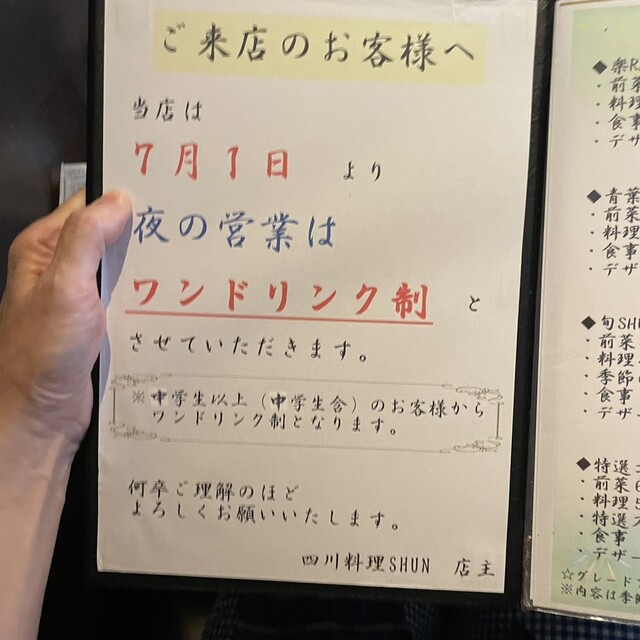 ご来店のお客様へ
当店は
7月1日 より
夜の営業は
ワンドリンク制 と
させていただきます。
※中学生以上（中学生含）のお客様から
ワンドリンク制となります。
何卒ご理解のほど
よろしくお願いいたします。
四川料理SHUN 店主
◆楽
・前菜
・料理
・食事
・デザ
◆青葉
・前菜
・料理
・食事
・デザー
◆旬SHU
・前菜
・料理
・季節
・食事
・デザー
◆特選
・前菜
・料理
・特選
・食事
・デザー
☆グレード
※内容は季節